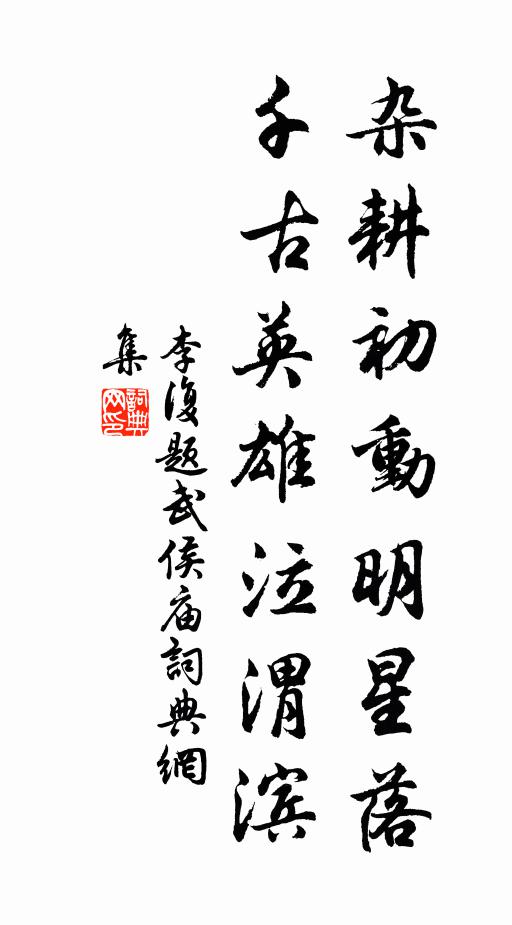 杂耕初動明星落
千古英雄泣渭滨
李復题武侯庙詞典網
集
詞典
网印